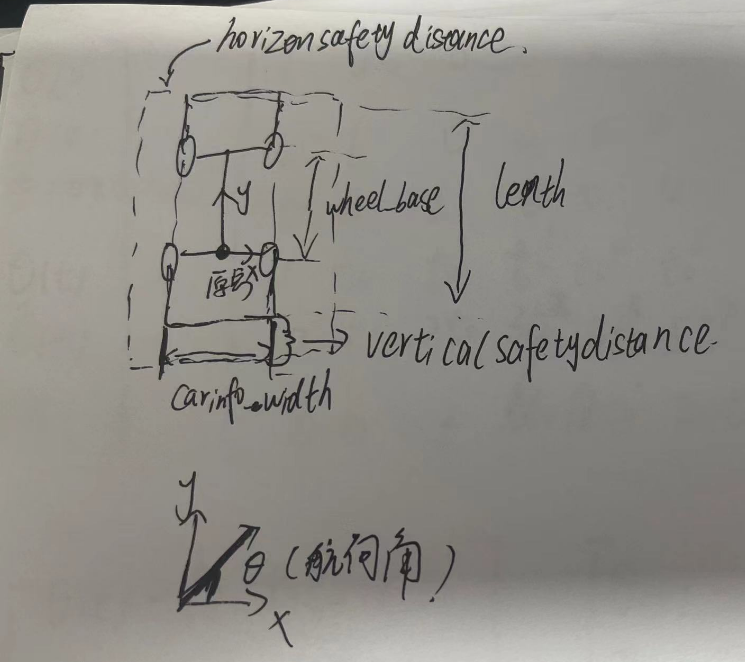 horizon safety distance.
y
wheel_base
lenth
x
原点
vertical safety distance
carinfo_width
y
θ (航向角)
x